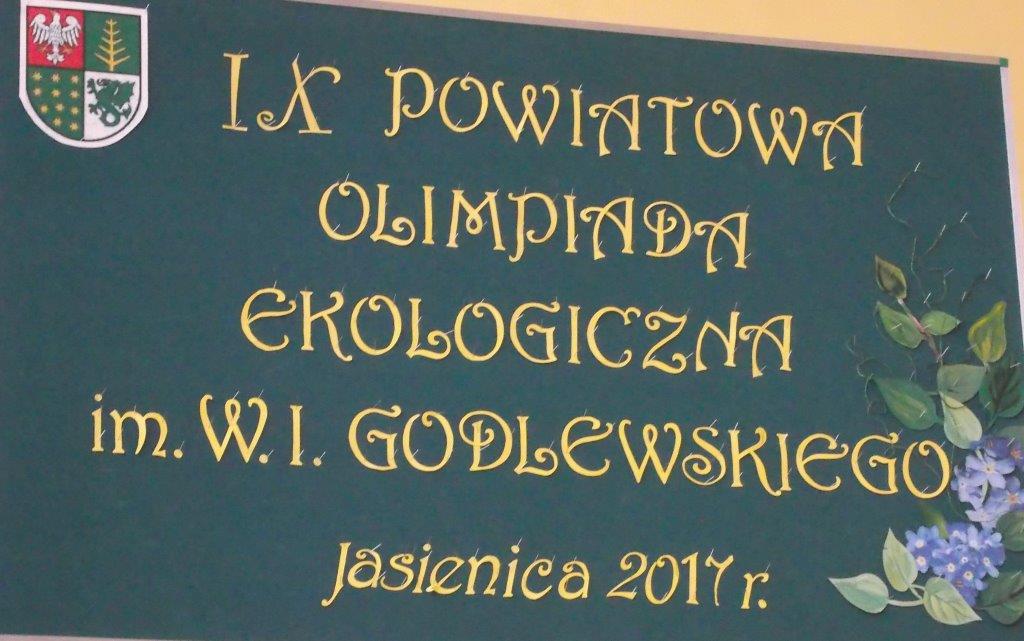 IX POWIATOWA
OLIMPIADA
EKOLOGICZNA
im. W. I. GODLEWSKIEGO
Jasienica 2017 r.